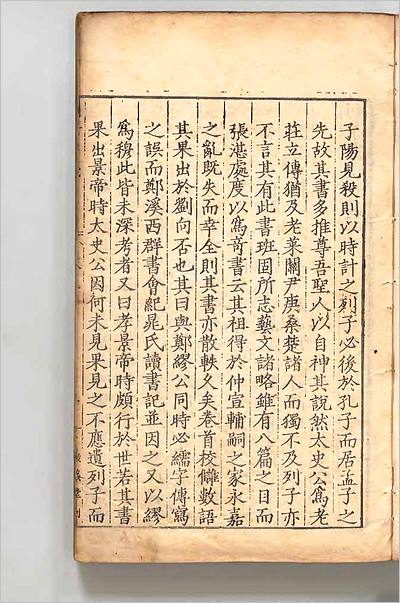 子陽見殺則以時計之列子必後於孔子而居孟子之
先故其書多推尊吾聖人以自神其說然太史公爲老
莊立傳猶及老萊關尹庚桑楚諸人而獨不及列子亦
不言其有此書班固所志藝文諸略雖有八篇之目而
張湛處度以爲竒書云其祖得於仲宣輔嗣之家永嘉
之亂既失而幸全則其書亦散軼久矣卷首校讎數語
其果出於劉向否也其曰與鄭繆公同時必繻字傳寫
之誤而鄭溪西群書會紀晁氏讀書記並因之又以繆
爲穆此皆未深考者又曰孝景帝時頗行於世若其書
果出景帝時太史公因何未見果見之不應遺列子而